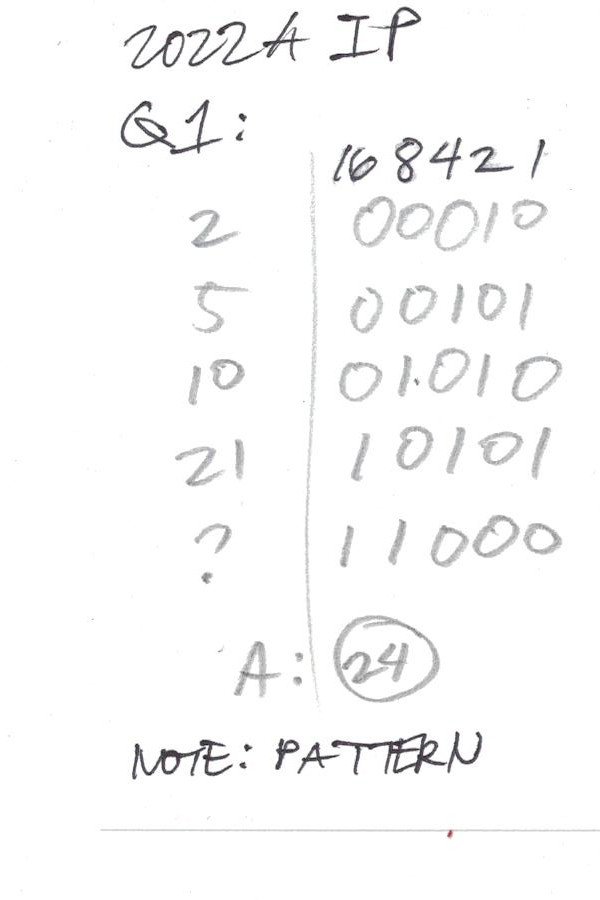 2022A IP
Q1:
16 8 4 2 1
2 00010
5 00101
10 01010
21 10101
? 11000
A: 24
NOTE: PATTERN